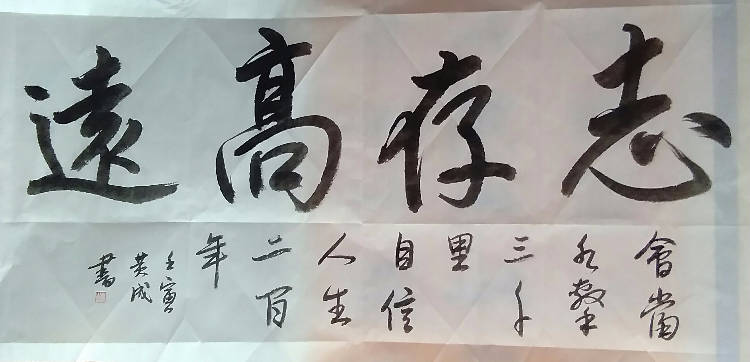 志存高遠
會當
水擊
三千
里
自信
人生
二百
年
壬寅
成
書